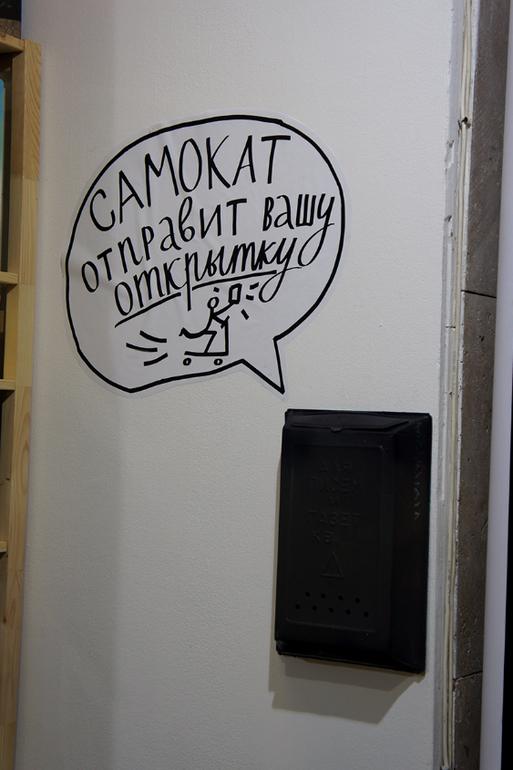 САМОКАТ
отправит вашу
открытку
ДЛЯ
ПИСЕМ
И
ГАЗЕТ
КВ